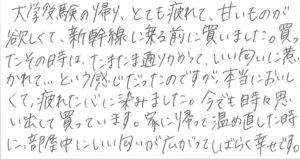 大学受験の帰り、とても疲れて、甘いものが
欲しくて、新幹線に乗る前に買いました。買っ
たその日は、たまたま通りかかって、いい匂いに惹
かれて…という感じだったのですが、本当においし
くて、疲れた心に染みました。今でも時々思
い出して買っています。家に帰って温め直した時
に、部屋中にいい匂いが広がってしばらく幸せです。